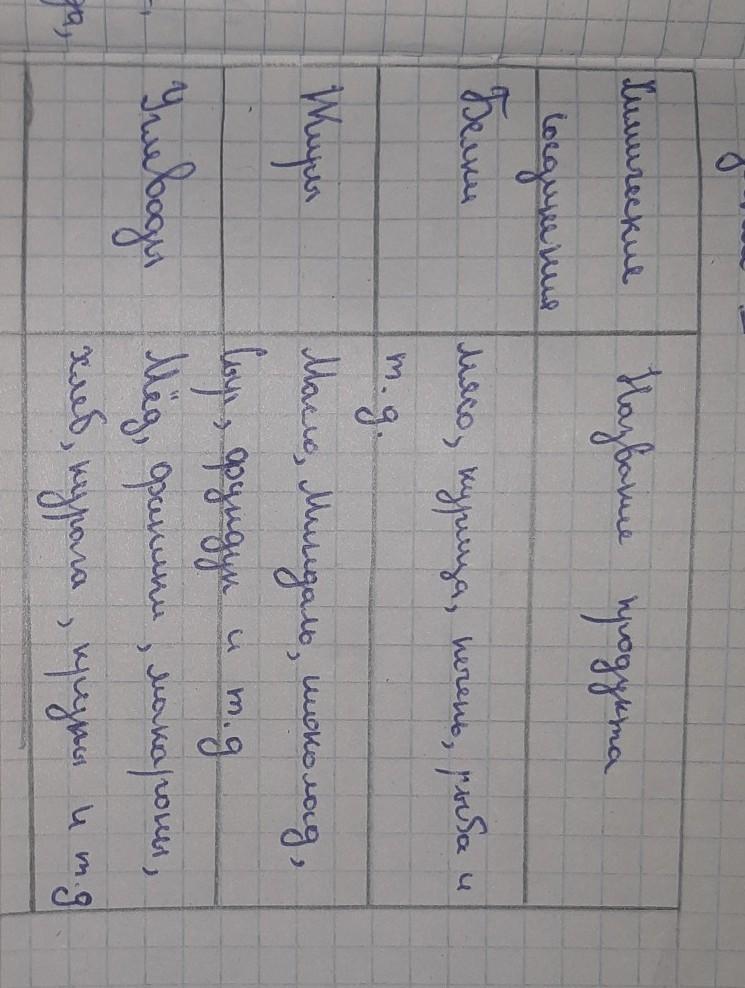 Химические соединения
Название продукта
Белки
мясо, курица, печень, рыба и
т. д.
Жиры
Масло, Миндаль, шоколад,
Сыр, фундук и т.д
Углеводы
Мёд, финики, макароны,
хлеб, курага,
и т.д